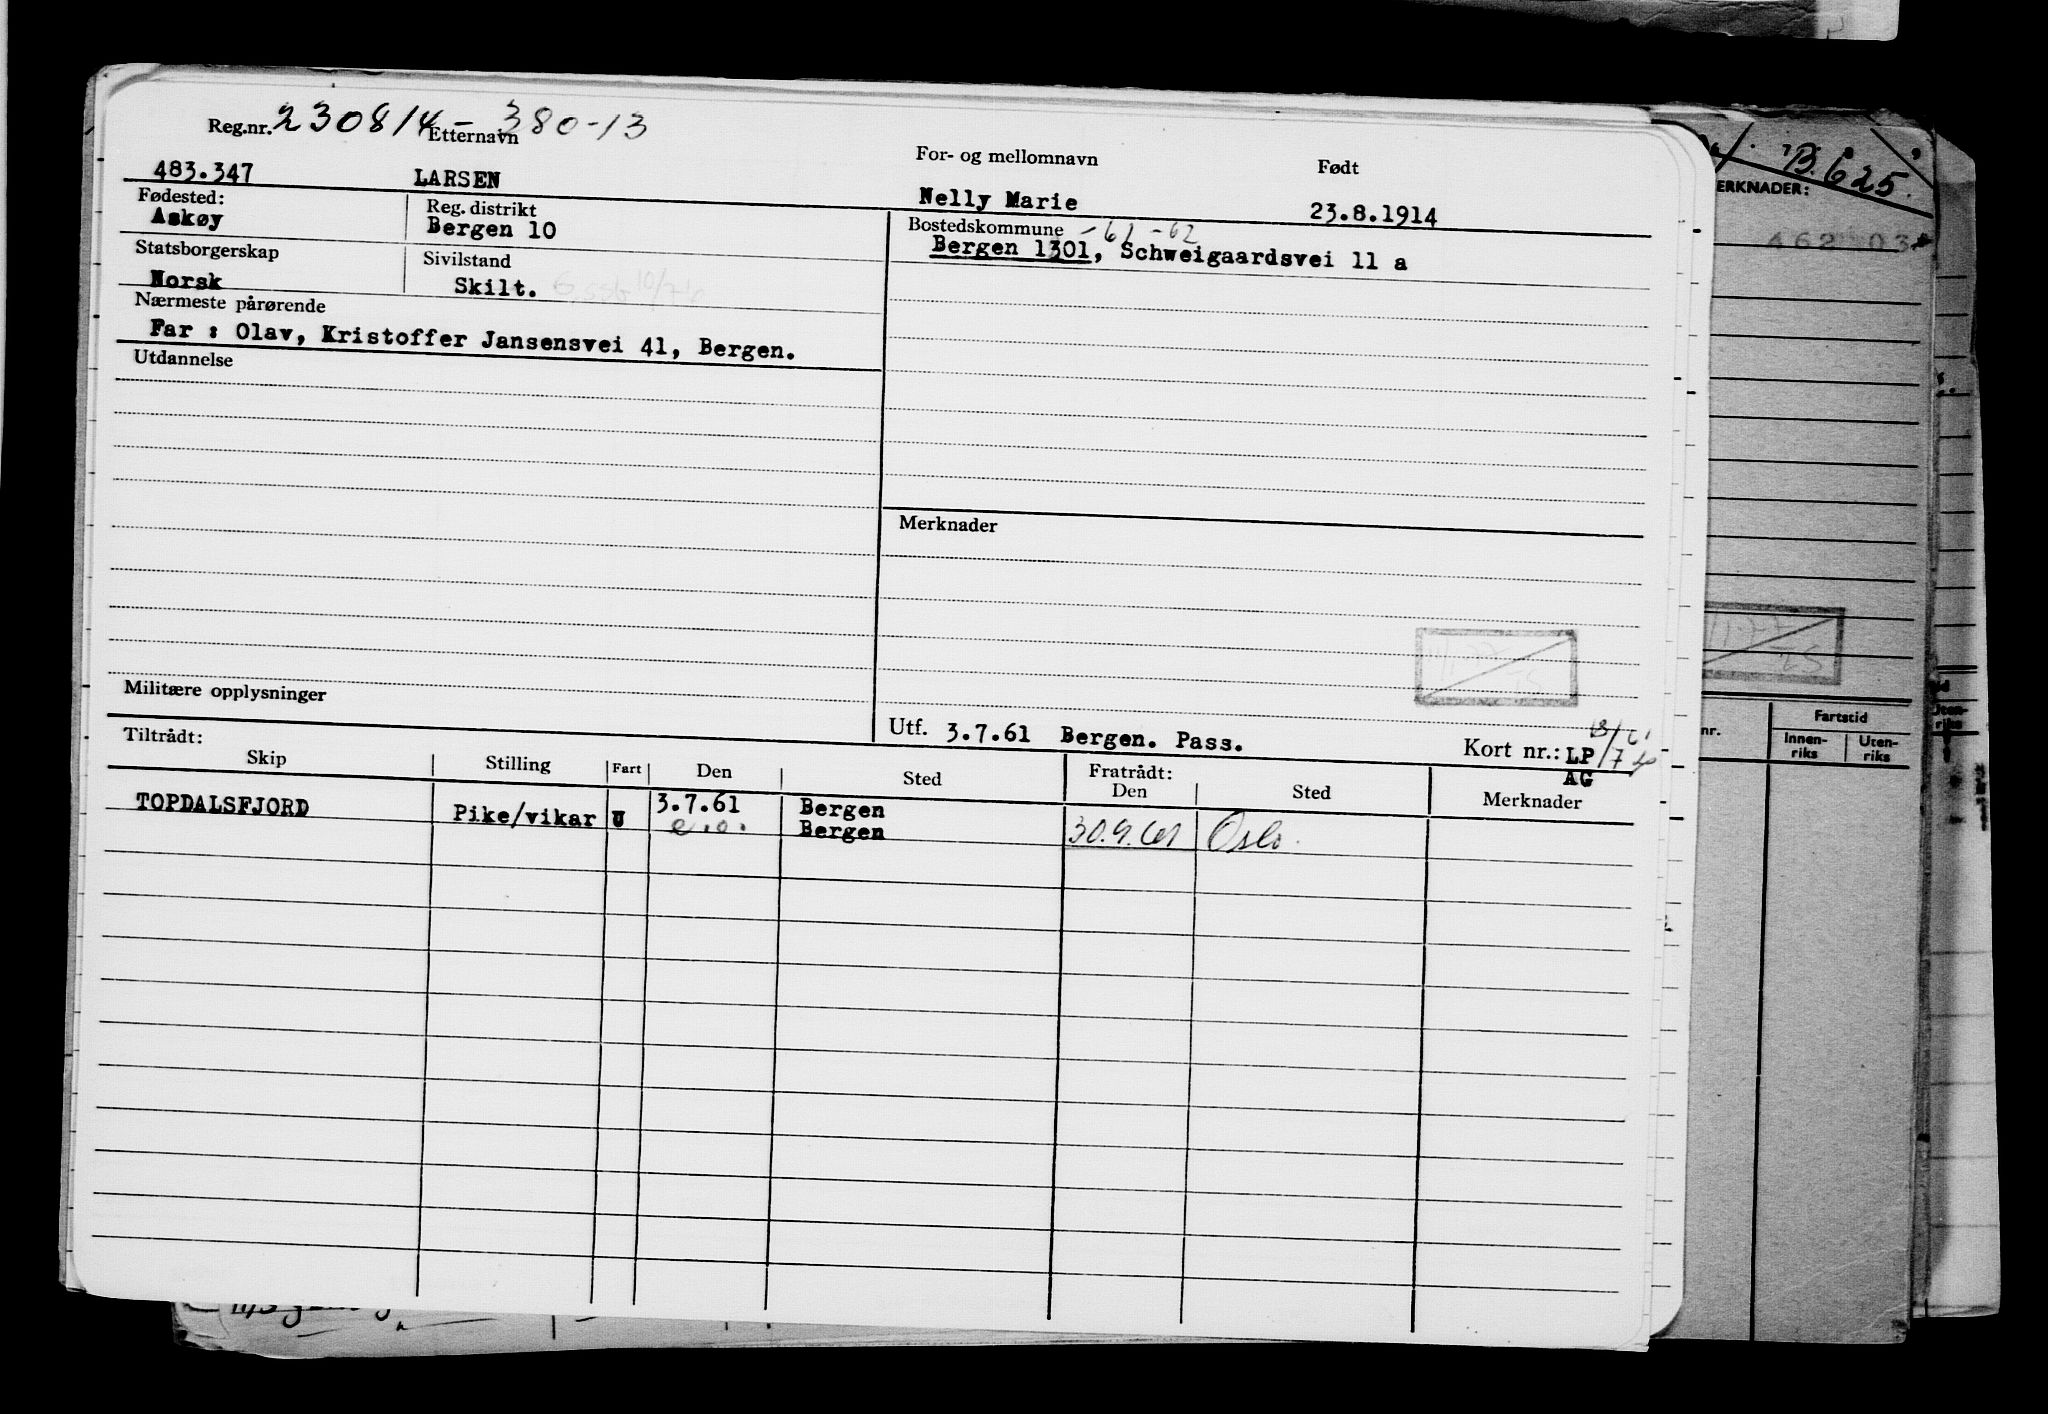 Reg.nr. 230814 - 380-13
Etternavn
For- og mellomnavn
Født
483.347 LARSEN Nelly Marie 23.8.1914
Fødested: Reg. distrikt Bostedskommune -61-62
Askøy Bergen 10 Bergen 1301, Schweigaardsvei 11 a
Statsborgerskap Sivilstand
Norsk Skilt.
Nærmeste pårørende
Far : Olav, Kristoffer Jansensvei 41, Bergen.
Utdannelse
Merknader
Militære opplysninger
Utf. 3.7.61 Bergen. Pass. Kort nr.: LP
AG
Tiltrådt: Fratrådt:
Skip Stilling Fart Den Sted Den Sted Merknader
TOPDALSFJORD Pike/vikar U 3.7.61 Bergen
e.o. Bergen 30.9.61 Oslo.
B.625.
ERKNADER:
462 03
nr. Fartstid
Innen-riks Uten-riks